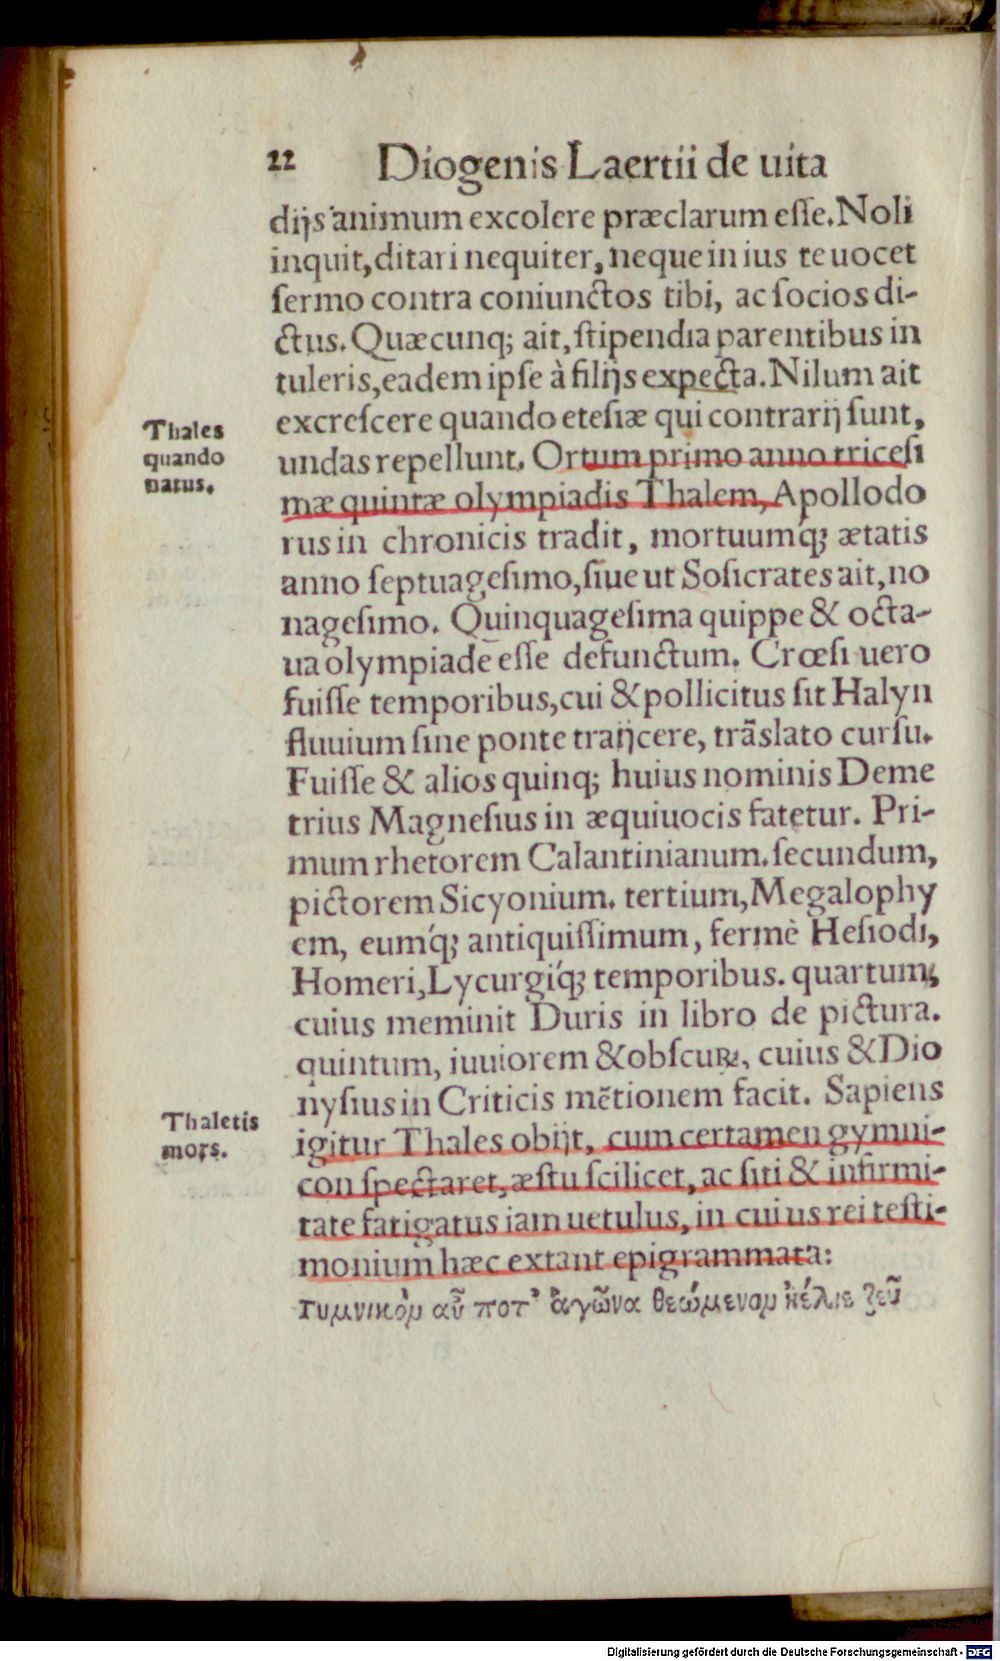 22 Diogenis Laertii de uita
dijs animum excolere præclarum eſſe. Noli
inquit, ditari nequiter, neque in ius te uocet
ſermo contra coniunctos tibi, ac ſocios di-
ctus. Quæcunq; ait, ſtipendia parentibus in
tuleris, eadem ipſe à filijs expecta. Nilum ait
excreſcere quando eteſiæ qui contrarij ſunt,
Thales
quando
natus.
undas repellunt. Ortum primo anno triceſi
mæ quintæ olympiadis Thalem, Apollodo
rus in chronicis tradit, mortuumq́; ætatis
anno ſeptuageſimo, ſiue ut Soſicrates ait, no
nageſimo. Quinquageſima quippe & octa-
ua olympiade eſſe defunctum. Crœſi uero
fuiſſe temporibus, cui & pollicitus ſit Halyn
fluuium ſine ponte traijcere, trãſlato curſu.
Fuiſſe & alios quinq; huius nominis Deme
trius Magneſius in æquiuocis fatetur. Pri-
mum rhetorem Calantinianum. ſecundum,
pictorem Sicyonium. tertium, Megalophy
em, eumq́; antiquiſſimum, fermè Heſiodi,
Homeri, Lycurgiq́; temporibus. quartum,
cuius meminit Duris in libro de pictura.
quintum, iuuiorem & obſcuꝝ, cuius & Dio
nyſius in Criticis mẽtionem facit. Sapiens
Thaletis
mors.
igitur Thales obijt, cum certamen gymni-
con ſpectaret, æſtu ſcilicet, ac ſiti & infirmi-
tate fatigatus iam uetulus, in cuius rei teſti-
monium hæc extant epigrammata:
Γυμνικὸν αὖ ποτ' ἀγῶνα θεώμενον ἠέλιε ζεῦ
Digitalisierung gefördert durch die Deutsche Forschungsgemeinschaft - DFG